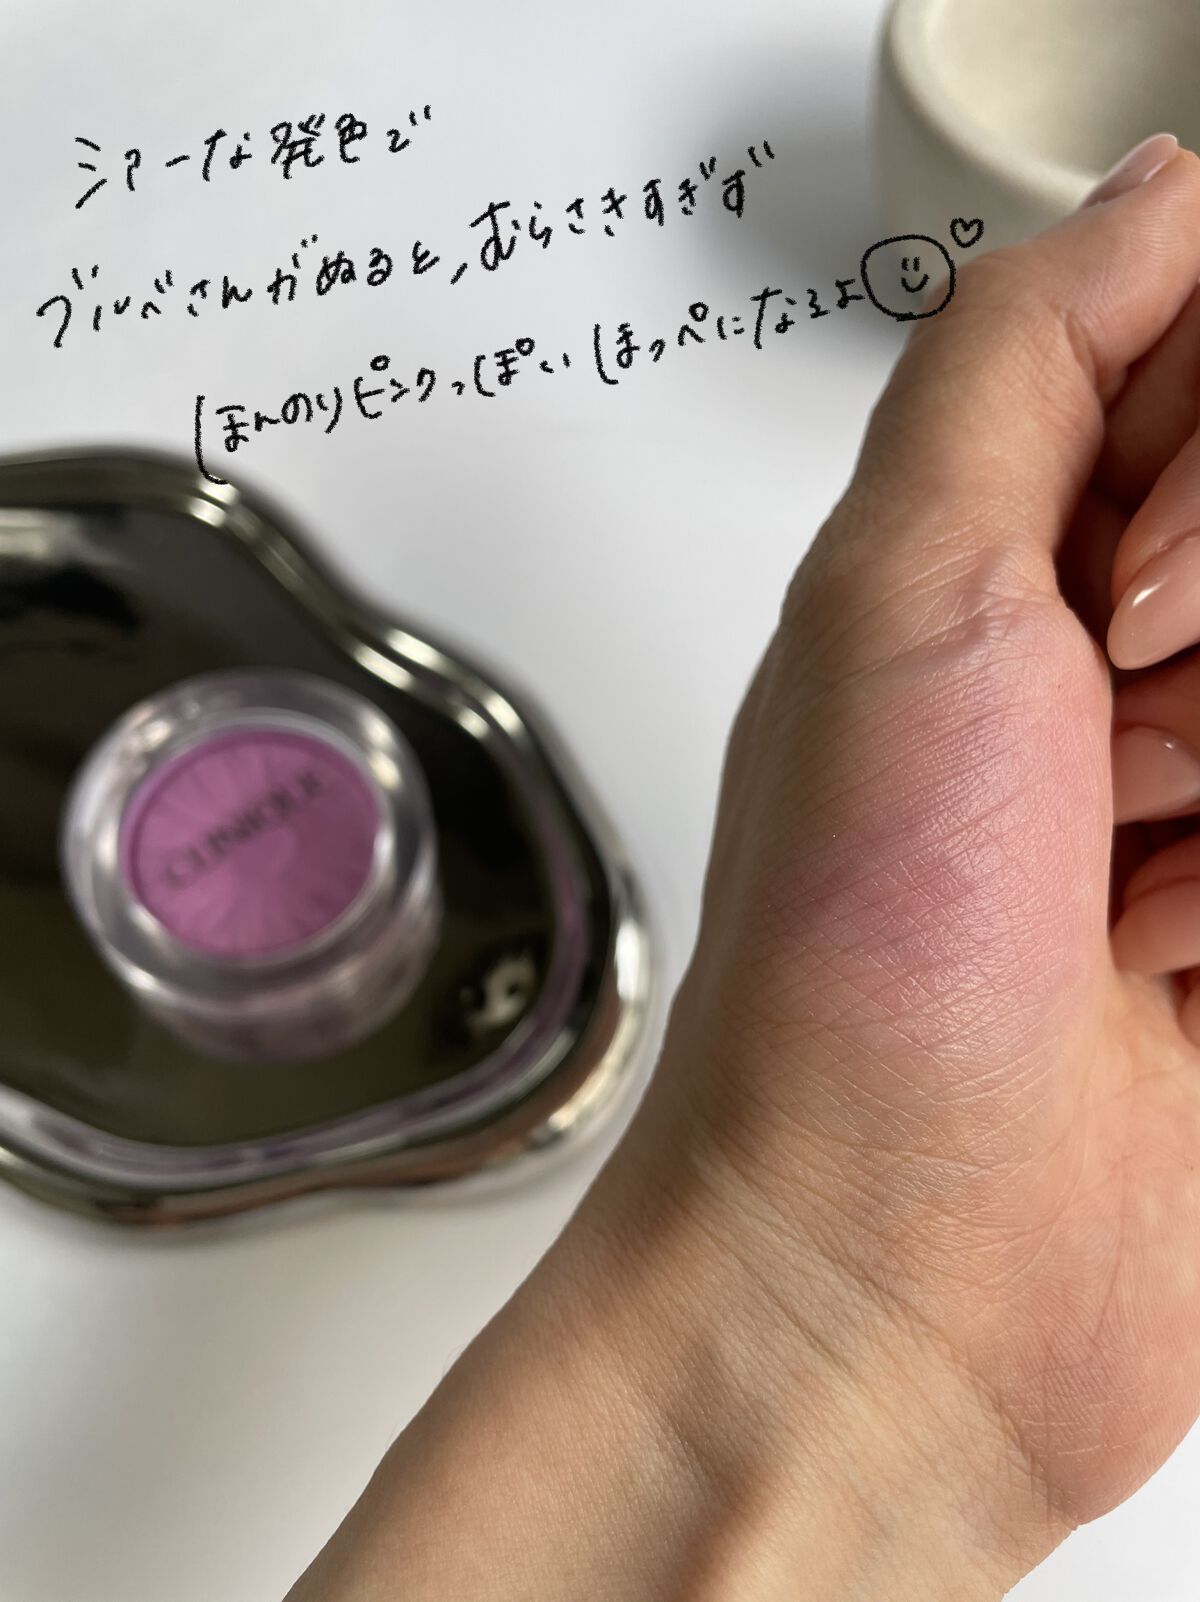 シアーな発色で
ブルベさんがぬると、むらさきすぎず
ほんのりピンクっぽいほっぺになるよ
CLINIQUE